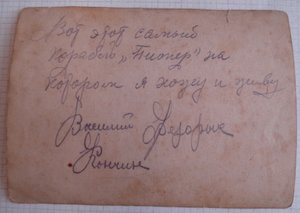 Вот этот самый
корабль „Пионер" на
котором я хожу и живу
Василий Федорыч
Кончин